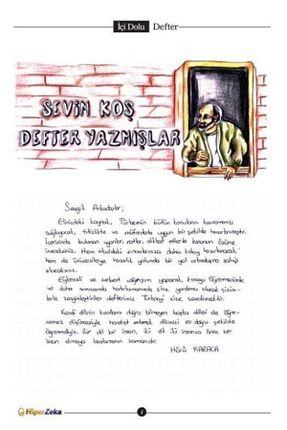 İçi Dolu Defter
SEVİM KOŞ
DEFTER YAZMIŞLAR
Sevgili Arkadaşlar;
Elinizdeki kaynak, Türkçenin bütün konularını kavramanızı
sağlayacak, titizlikle ve müfredata uygun bir şekilde hazırlanmıştır.
İçerisinde bulunan yazılar, notlar, dikkat edilerek konunun özüne
hem de üniversiteye hazırlık yolunda bir yol arkadaşına sahip
olacaksınız.
Eğlenceli ve serbest
ve daha sonrasında hatırlamanızda size yardımcı olacak
defterimiz Türkçeyi size sevdirecektir.
Kendi dilinin kurallarını doğru bilmeyen başka dilleri de öğre-
nemez düşüncesiyle hareket ederek dilimizi en doğru şekilde
öğrenmeliyiz. Bir dil bir insan, iki dil iki insansa önce bir
insan olmaya başlamanın zamanıdır.
Hürü KARACA
HiperZeka
1